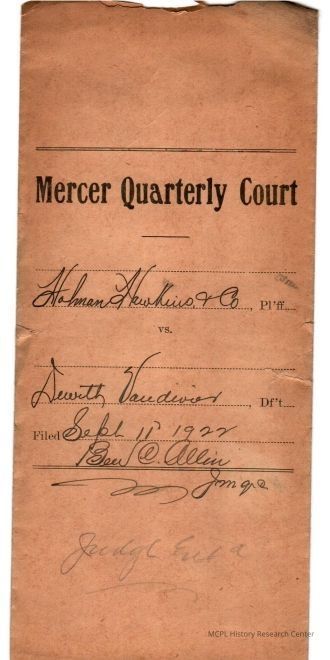 Mercer Quarterly Court
Holman Hawkins & Co, Pl'ff.
vs.
Dewitt Vandivier, Df't.
Filed Sept 11 1922
Ben C. Allin
Judge
MCPL History Research Center